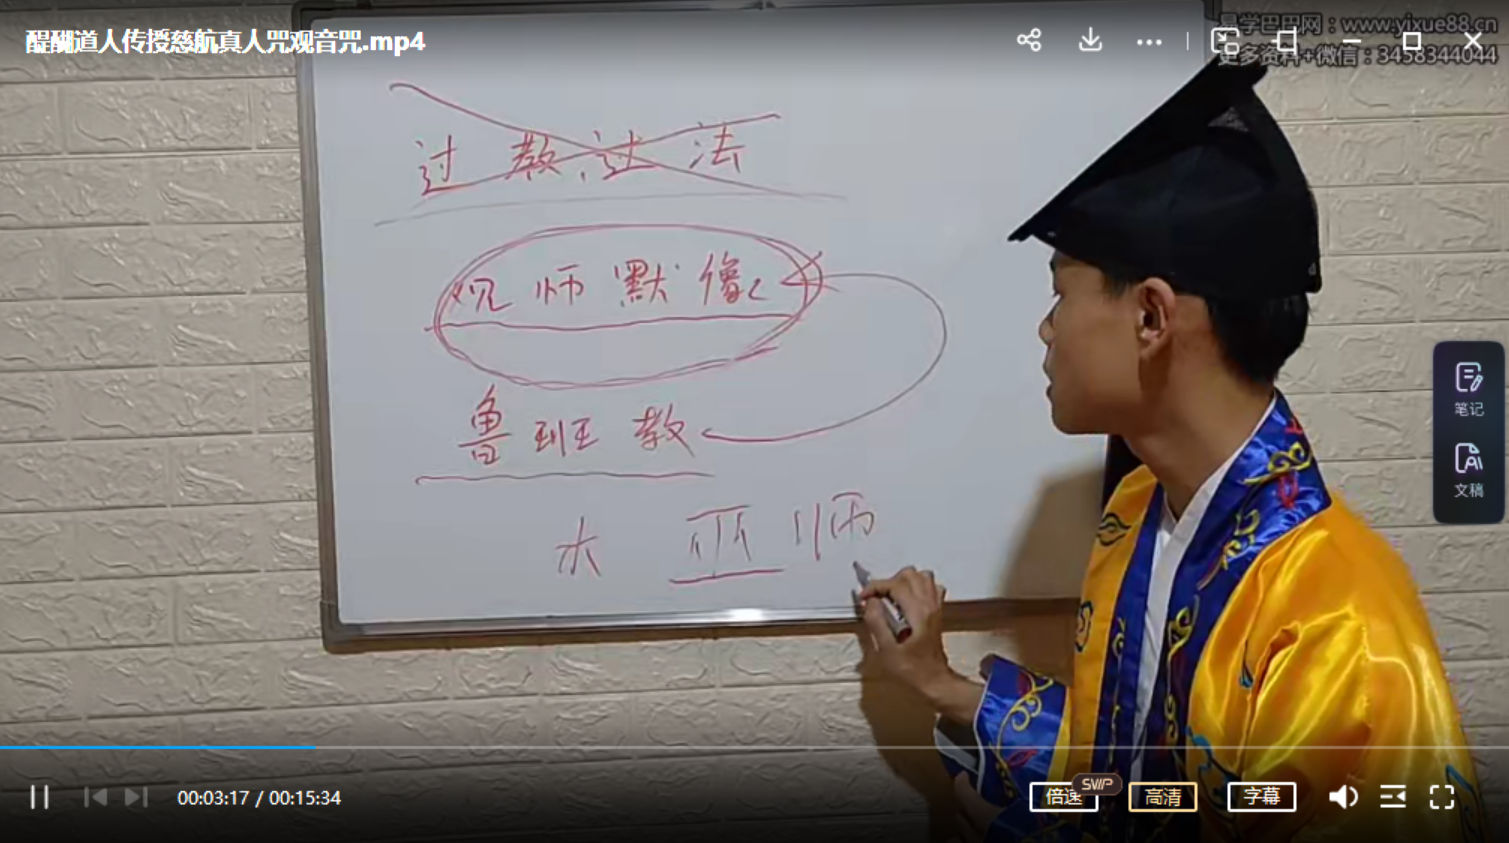 醍醐道人传授慈航真人咒观音咒.mp4
易学巴巴网：www.yixue88.cn
更多资料+微信：3458344044
过教过法
观师默像
鲁班教
木巫师
笔记
文稿
00:03:17 / 00:15:34
倍速
SVIP
高清
字幕